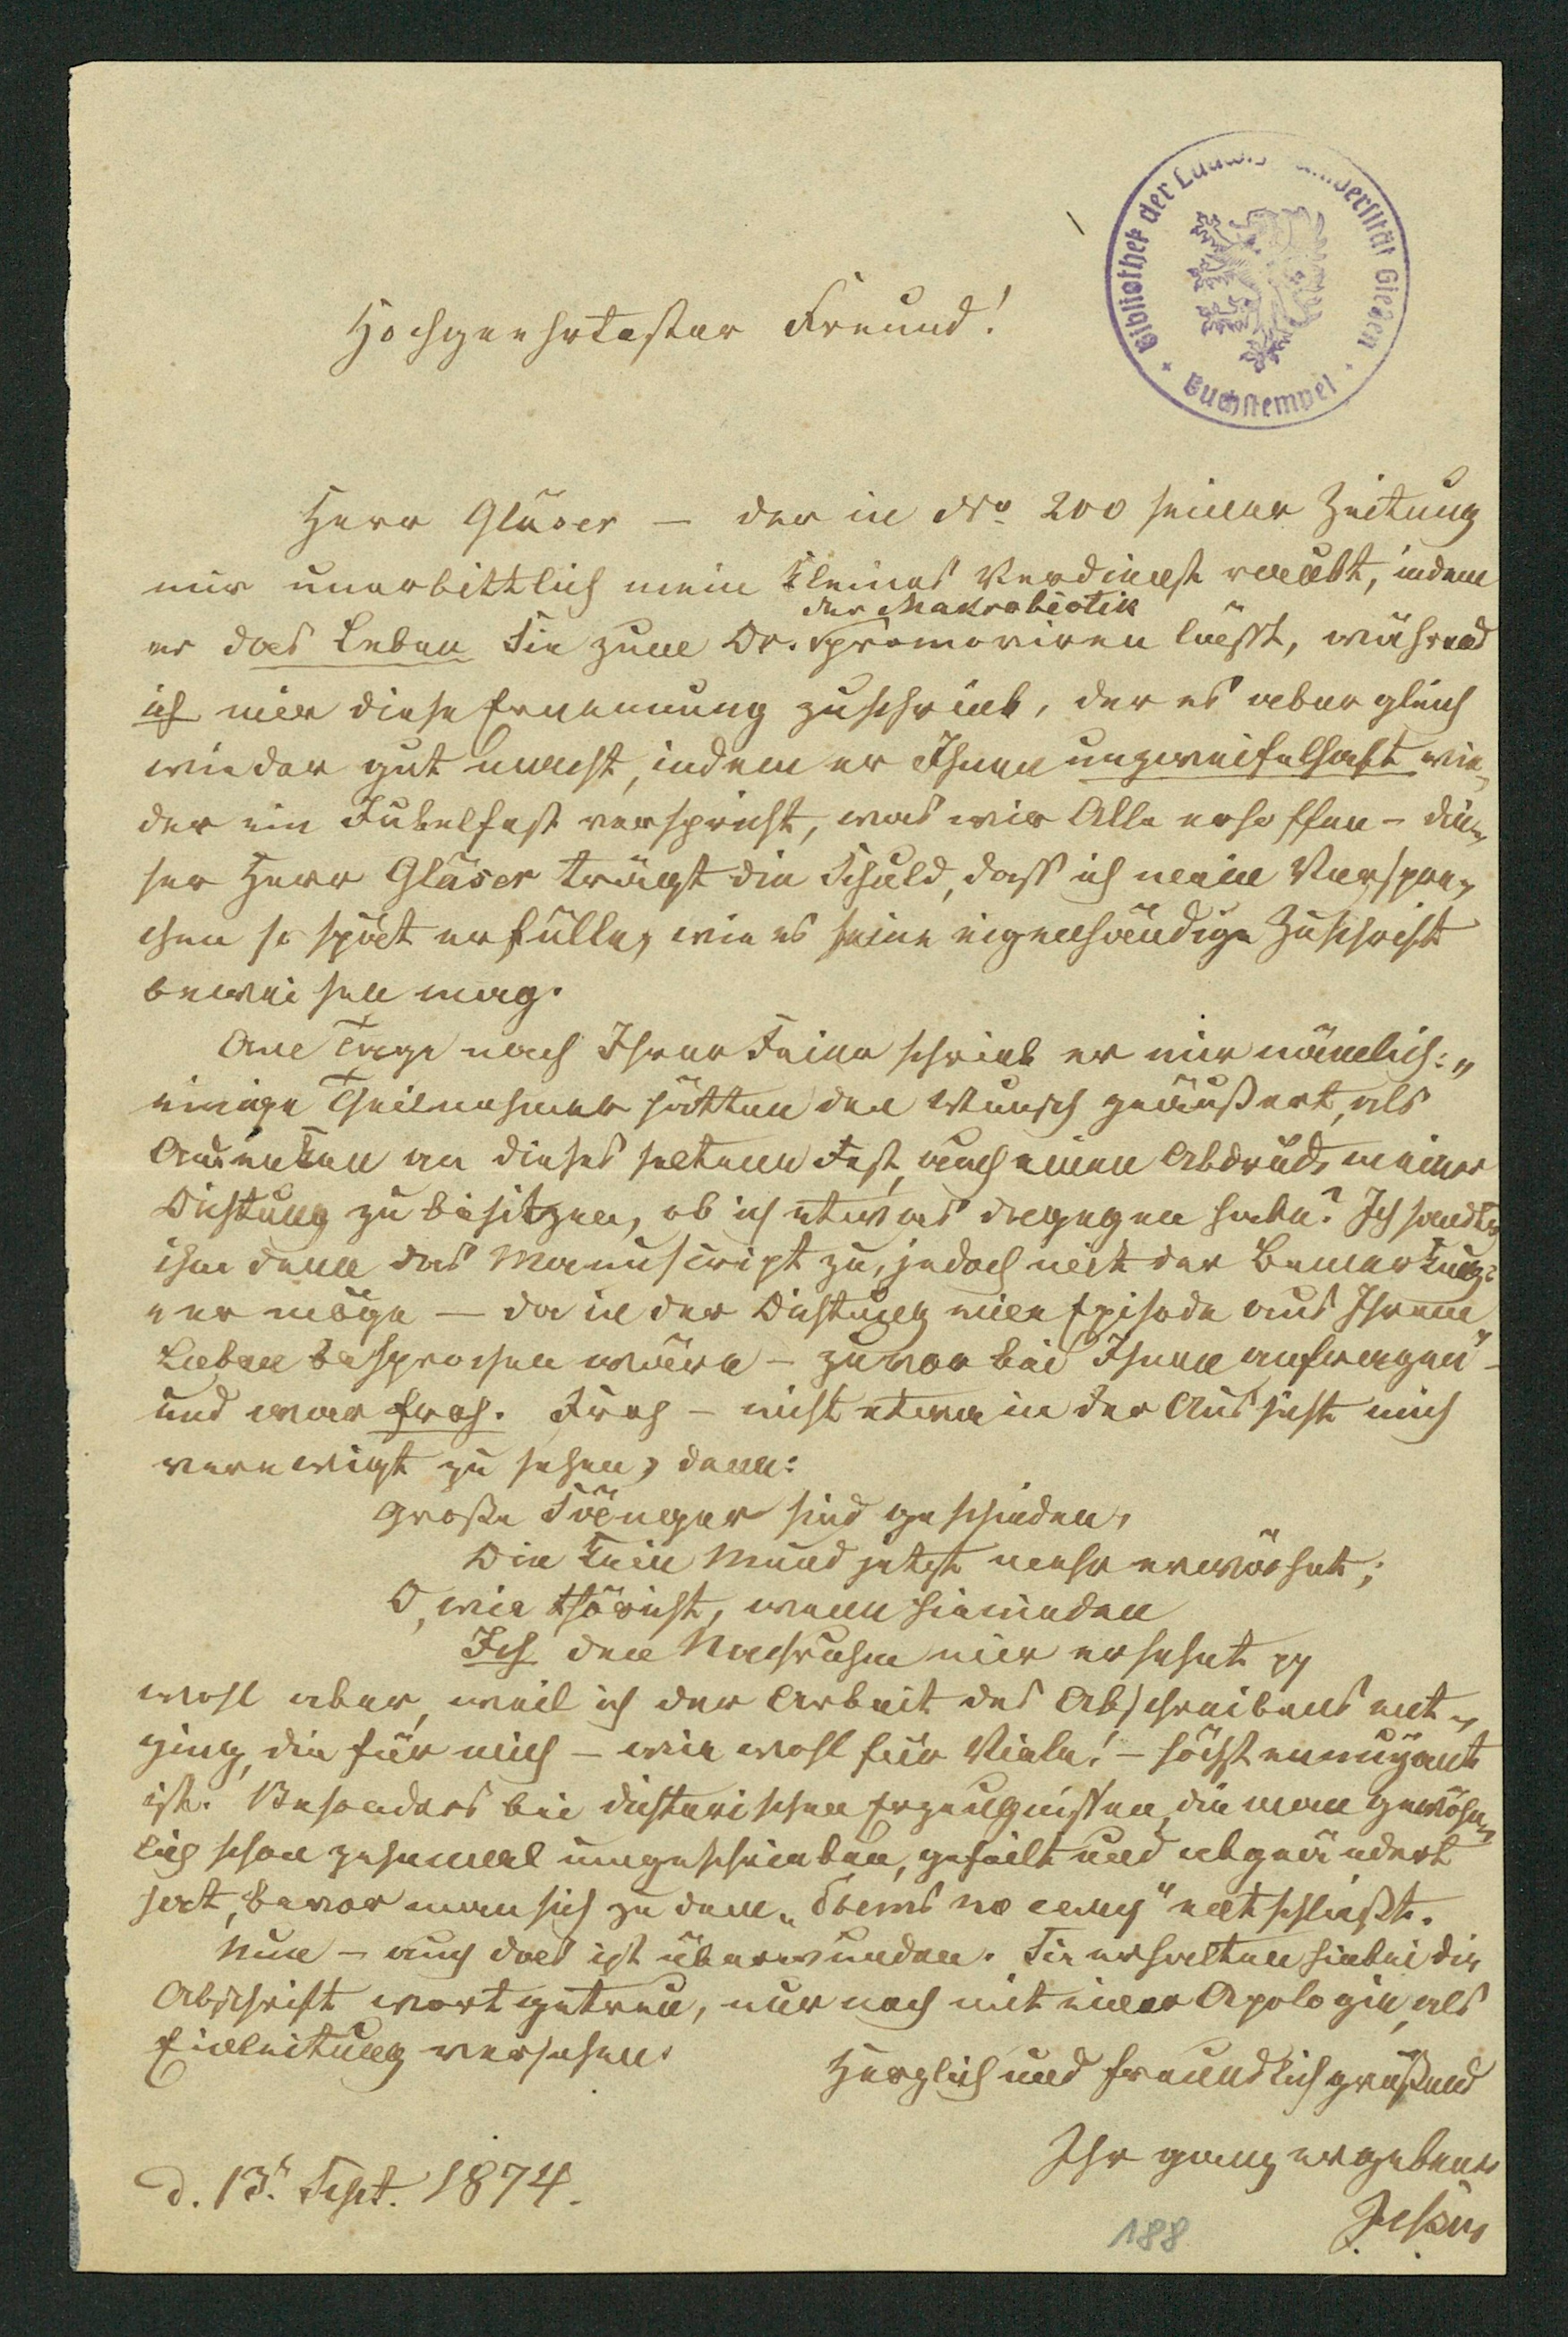 Bibliothek der Ludwigs-Universität Gießen
Buchstempel
Hochgeehrtester Freund!
Herr Gläser – der in No 200 seiner Zeitung
mir unerbittlich mein kleines Verdienst raubt, indem
der Makrobiotik
er das Leben Sie zum Dr. promoviren läßt, während
ich mir diese Ernennung zuschrieb, der es aber gleich
wieder gut macht, indem er Ihnen unzweifelhaft wie-
der ein Jubelfest verspricht, was wir Alle erhoffen – die-
ser Herr Gläser trägt die Schuld, daß ich mein Verspre-
chen so spät erfülle, wie es seine eigenhändige Zuschrift
beweisen mag.
Am Tage nach Ihrer Feier schrieb er mir nämlich: „
einige Theilnehmer hätten den Wunsch geäußert, als
Andenken an dieses seltene Fest, auch einen Abdruck meiner
Dichtung zu besitzen, ob ich etwas dagegen habe? Ich sandte
ihm denn das Manuscript zu, jedoch mit der Bemerkung:
„er möge – da in der Dichtung eine Episode aus Ihrem
Leben besprochen wäre – zuvor bei Ihnen anfragen" –
und war froh. Froh – nicht etwa in der Aussicht mich
verewigt zu sehen, denn:
Große Sänger sind geschieden,
Die kein Mund jetzt mehr erwähnt;
O, wie thöricht, wenn hienieden
Ich den Nachruhm mir ersehnt
wohl aber, weil ich der Arbeit des Abschreibens ent-
ging, die für mich – wie wohl für Viele! – höchst ennuyant
ist. Besonders bei dichterischen Erzeugnissen, die man gewöhn-
lich schon zehnmal umgeschrieben, gefeilt und abgeändert
hat, bevor man sich zu dem entschließt.
Nun – auch das ist überwunden. Sie erhalten hiebei die
Abschrift wortgetreu, nur noch mit einer Apologie, als
Einleitung versehen.
Herzlich und freundlich grüßend
Ihr ganz ergebener
d. 13t Sept. 1874.
188